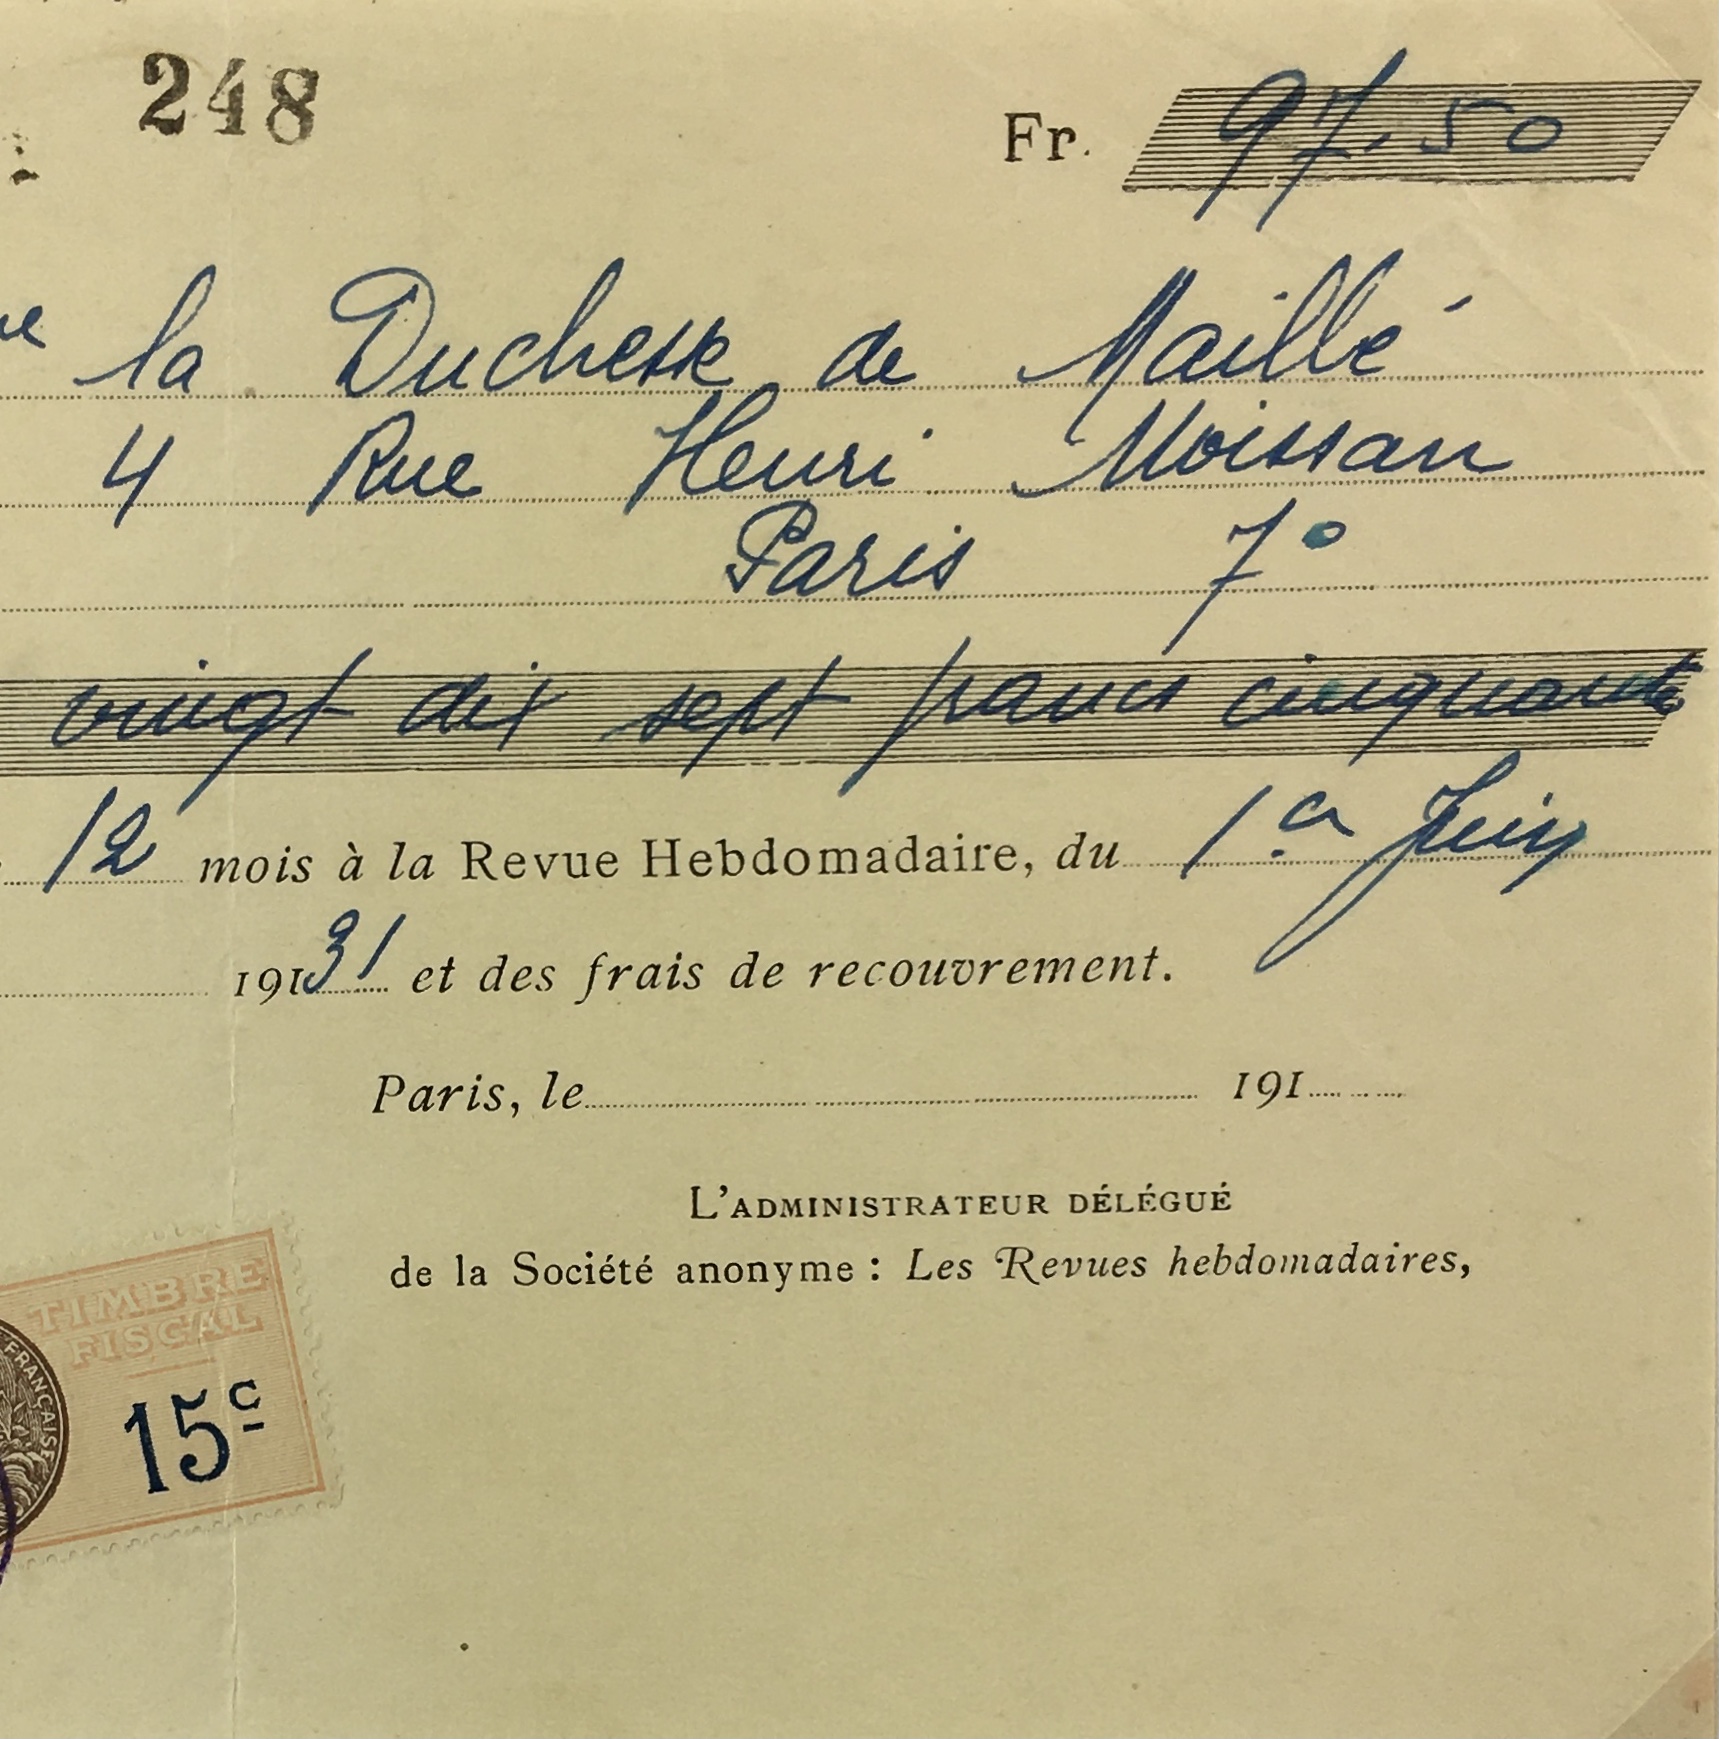 248
Fr. 97.50
la Duchesse de Maillé
4 Rue Henri Moissan
Paris 7e
vingt dix sept francs cinquante
12 mois à la Revue Hebdomadaire, du 1er Juin
19131 et des frais de recouvrement.
Paris, le 191
L'ADMINISTRATEUR DÉLÉGUÉ
de la Société anonyme : Les Revues hebdomadaires,
TIMBRE
FISCAL
FRANÇAISE
15c